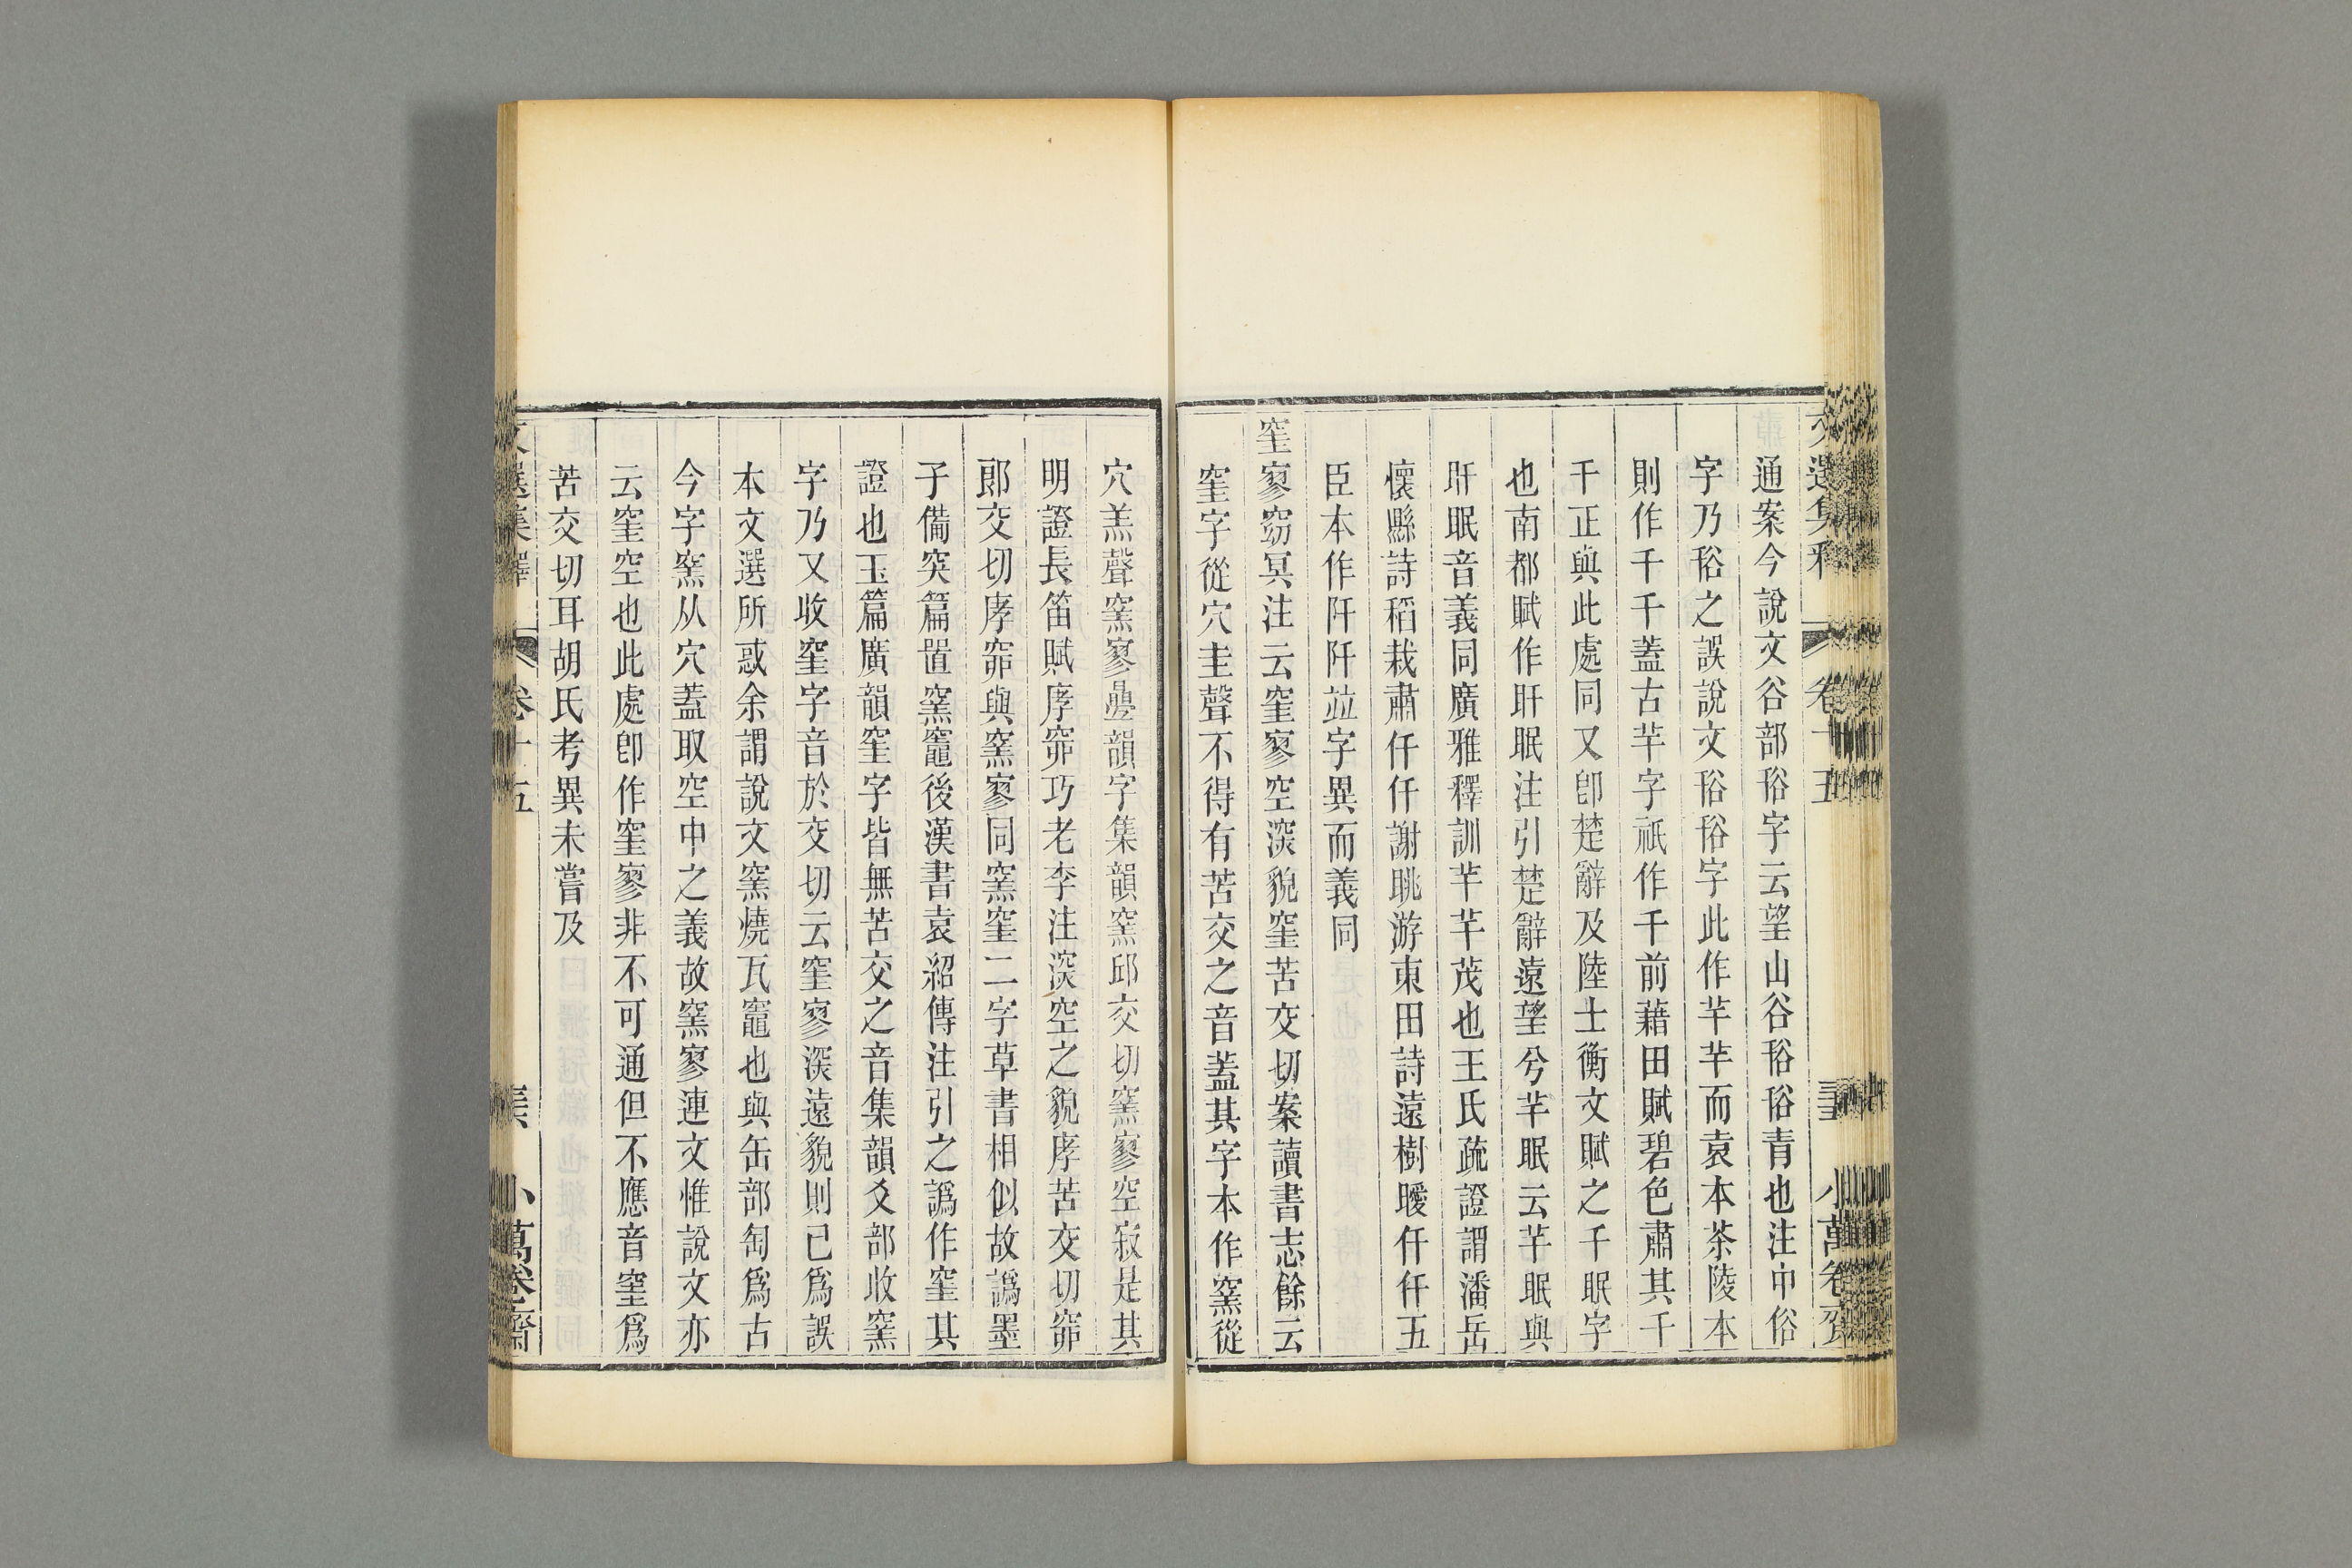 通案今說文谷部𧮬字云望山谷𧮬𧮬青也注中俗
字乃𧮬之誤說文𧮬𧮬字此作芊芊而袁本茶陵本
則作千千蓋古芊字祇作千前藉田賦碧色肅其千
千正與此處同又卽楚辭及陸士衡文賦之千眠字
也南都賦作盰眠注引楚辭遠望兮芊眠云芊眠與
盰眠音義同廣雅釋訓芊芊茂也王氏疏證謂潘岳
懷縣詩稻栽肅仟仟謝眺游東田詩遠樹曖仟仟五
臣本作阡阡竝字異而義同
窐寥窈冥注云窐寥空深貌窐苦交切案讀書志餘云
窐字從穴圭聲不得有苦交之音蓋其字本作窯從
穴羔聲窯寥疊韻字集韻窯邱交切窯寥空寂是其
明證長笛賦庨窌巧老李注深空之貌庨苦交切窌
郎交切庨窌與窯寥同窯窐二字草書相似故譌墨
子備突篇置窯竈後漢書袁紹傳注引之譌作窐其
證也玉篇廣韻窐字皆無苦交之音集韻爻部收窯
字乃又收窐字音於交切云窐寥深遠貌則已爲誤
本文選所惑余謂說文窯燒瓦竈也與缶部匋爲古
今字窯从穴蓋取空中之義故窯寥連文惟說文亦
云窐空也此處卽作窐寥非不可通但不應音窐爲
苦交切耳胡氏考異未嘗及
文選集釋 卷十五 小萬卷齋